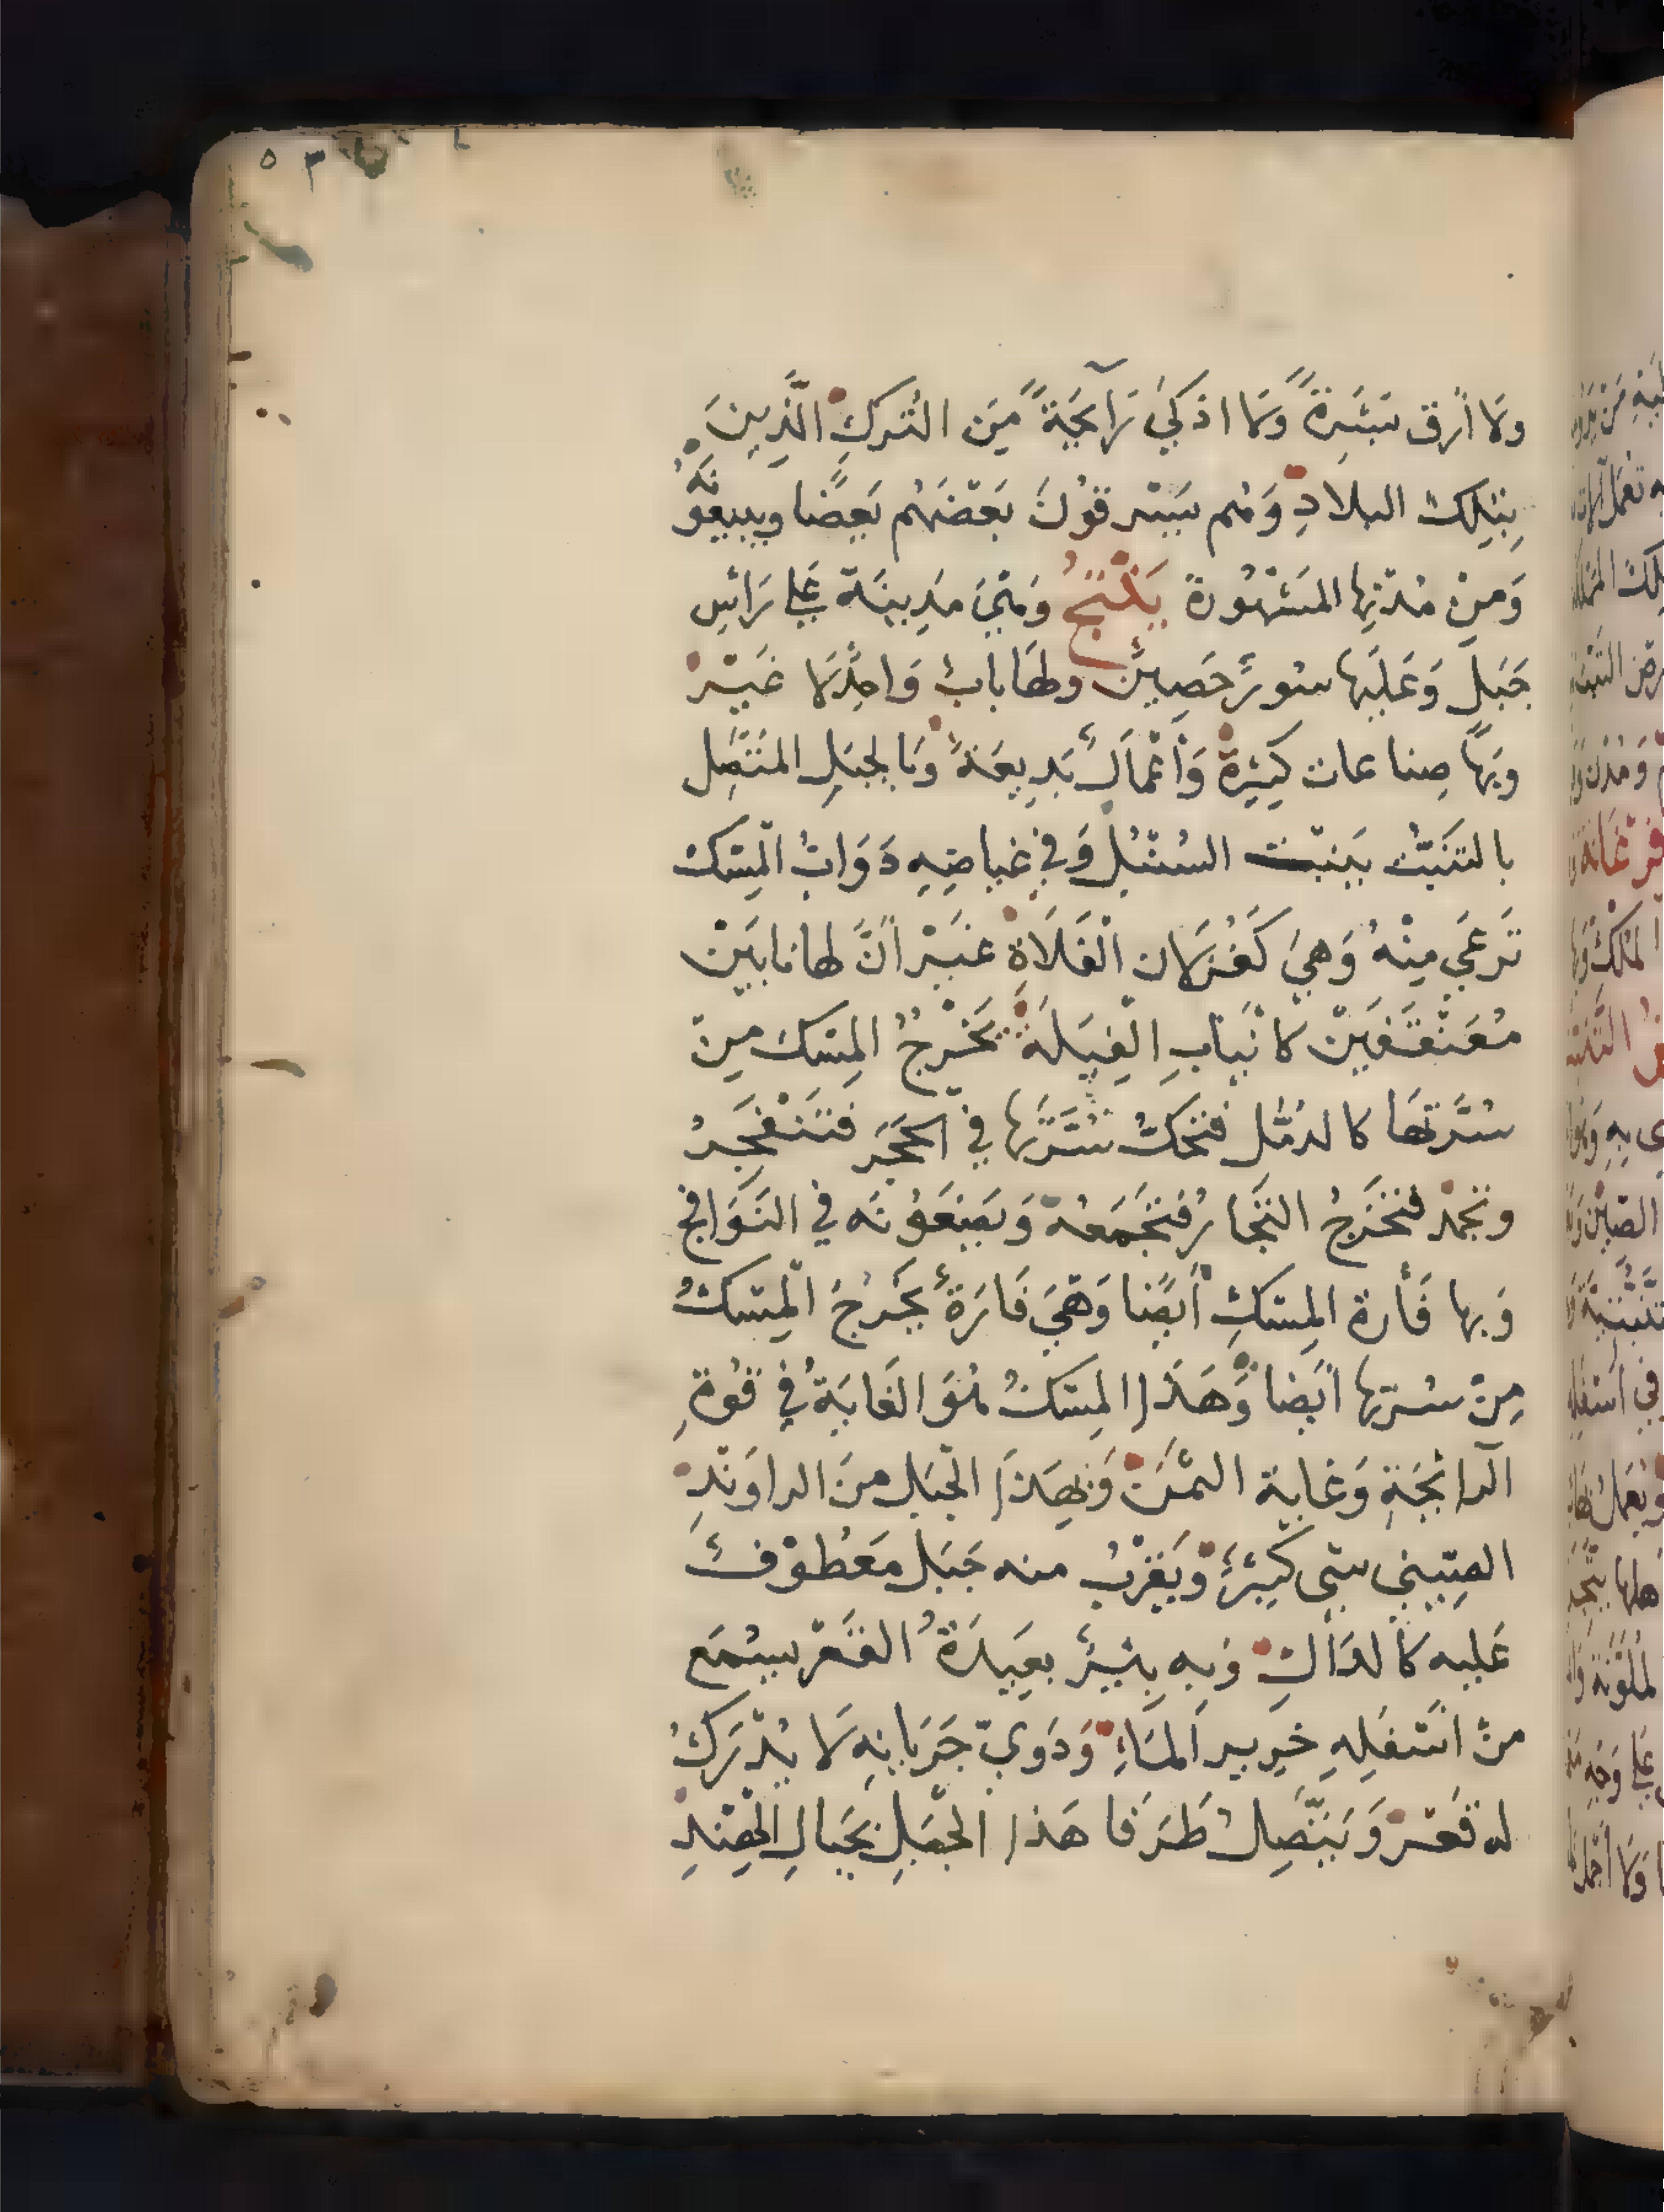 ٥٣
ولا أرق بَشَرةً ولا اذكي رَآيحَةً مِنَ التُركِ الَّذِينَ
بِتِلكَ البِلادِ وَهُم يَسْرقوُنَ بَعْضَهُم بَعضًا ويبيعُونَهُ
وَمِنْ مُدُنِها المَشْهُورَة يَلْنَجُ وَهيَ مَدِينَة عَلي رَأسِ
جَبَلٍ وَعَلَيها سُورٌ حَصِينٌ ولها بابٌ وَاحِدٌ لا غَيْرْ
وبَها صِناعات كَثيرةٌ وَأعْمَالٌ بَدِيعَةٌ وَبالجبَلِ المتَّصِل
بالتبَّت يَنبت السُنْبُل وَفي غياضِهِ دَوَابُ المِسْك
تَرعَي مِنْهُ وَهيَ كَغُزلان الْفَلَاةِ غَيْرَ أنَّ لها نابَيْن
مُعَقَّفَيْن كانْيابِ الْفِيَلَةِ يَخْرُجُ المِسْك مِنْ
سُرَّتها كالدُمَّل فتحكُّ سُرَّتها في الحَجَر فتَنْفَجِرُ
وتجمدْ فتَخرَجُ التجَارُ فتَجْمَعهُ وَيَضَعُونَه في النَوَافج
وَبها فَأرة المِسْكِ أيضًا وَهيَ فَارَةٌ يَخرُجُ المِسْكُ
مِنْ سُرّتِها أيضا وَهَذا المِسْكُ هُوَ الغَايَةُ في قوُةِ
الرائحَةِ وَغاية الثمَنْ وَبِهَذا الجَبَلِ مِنَ الراوَنْدِ
الصِينِي شي كثيرٌ وَيَقرُبُ منه جَبَل مَعْطُوْفٌ
عَليه كالدَّالِ وَبِه بِئْرٌ بعِيدَةُ القَعْر يسْمَع
منْ اسْفَلِهِ خَرِير المَاءِ وَدَويّ جَرَيانِهِ لَا يُدْرَكُ
له قعْر وَيَتَّصِلُ طَرَفا هَذا الجَبَلِ بجَبالِ الهِنْدِ